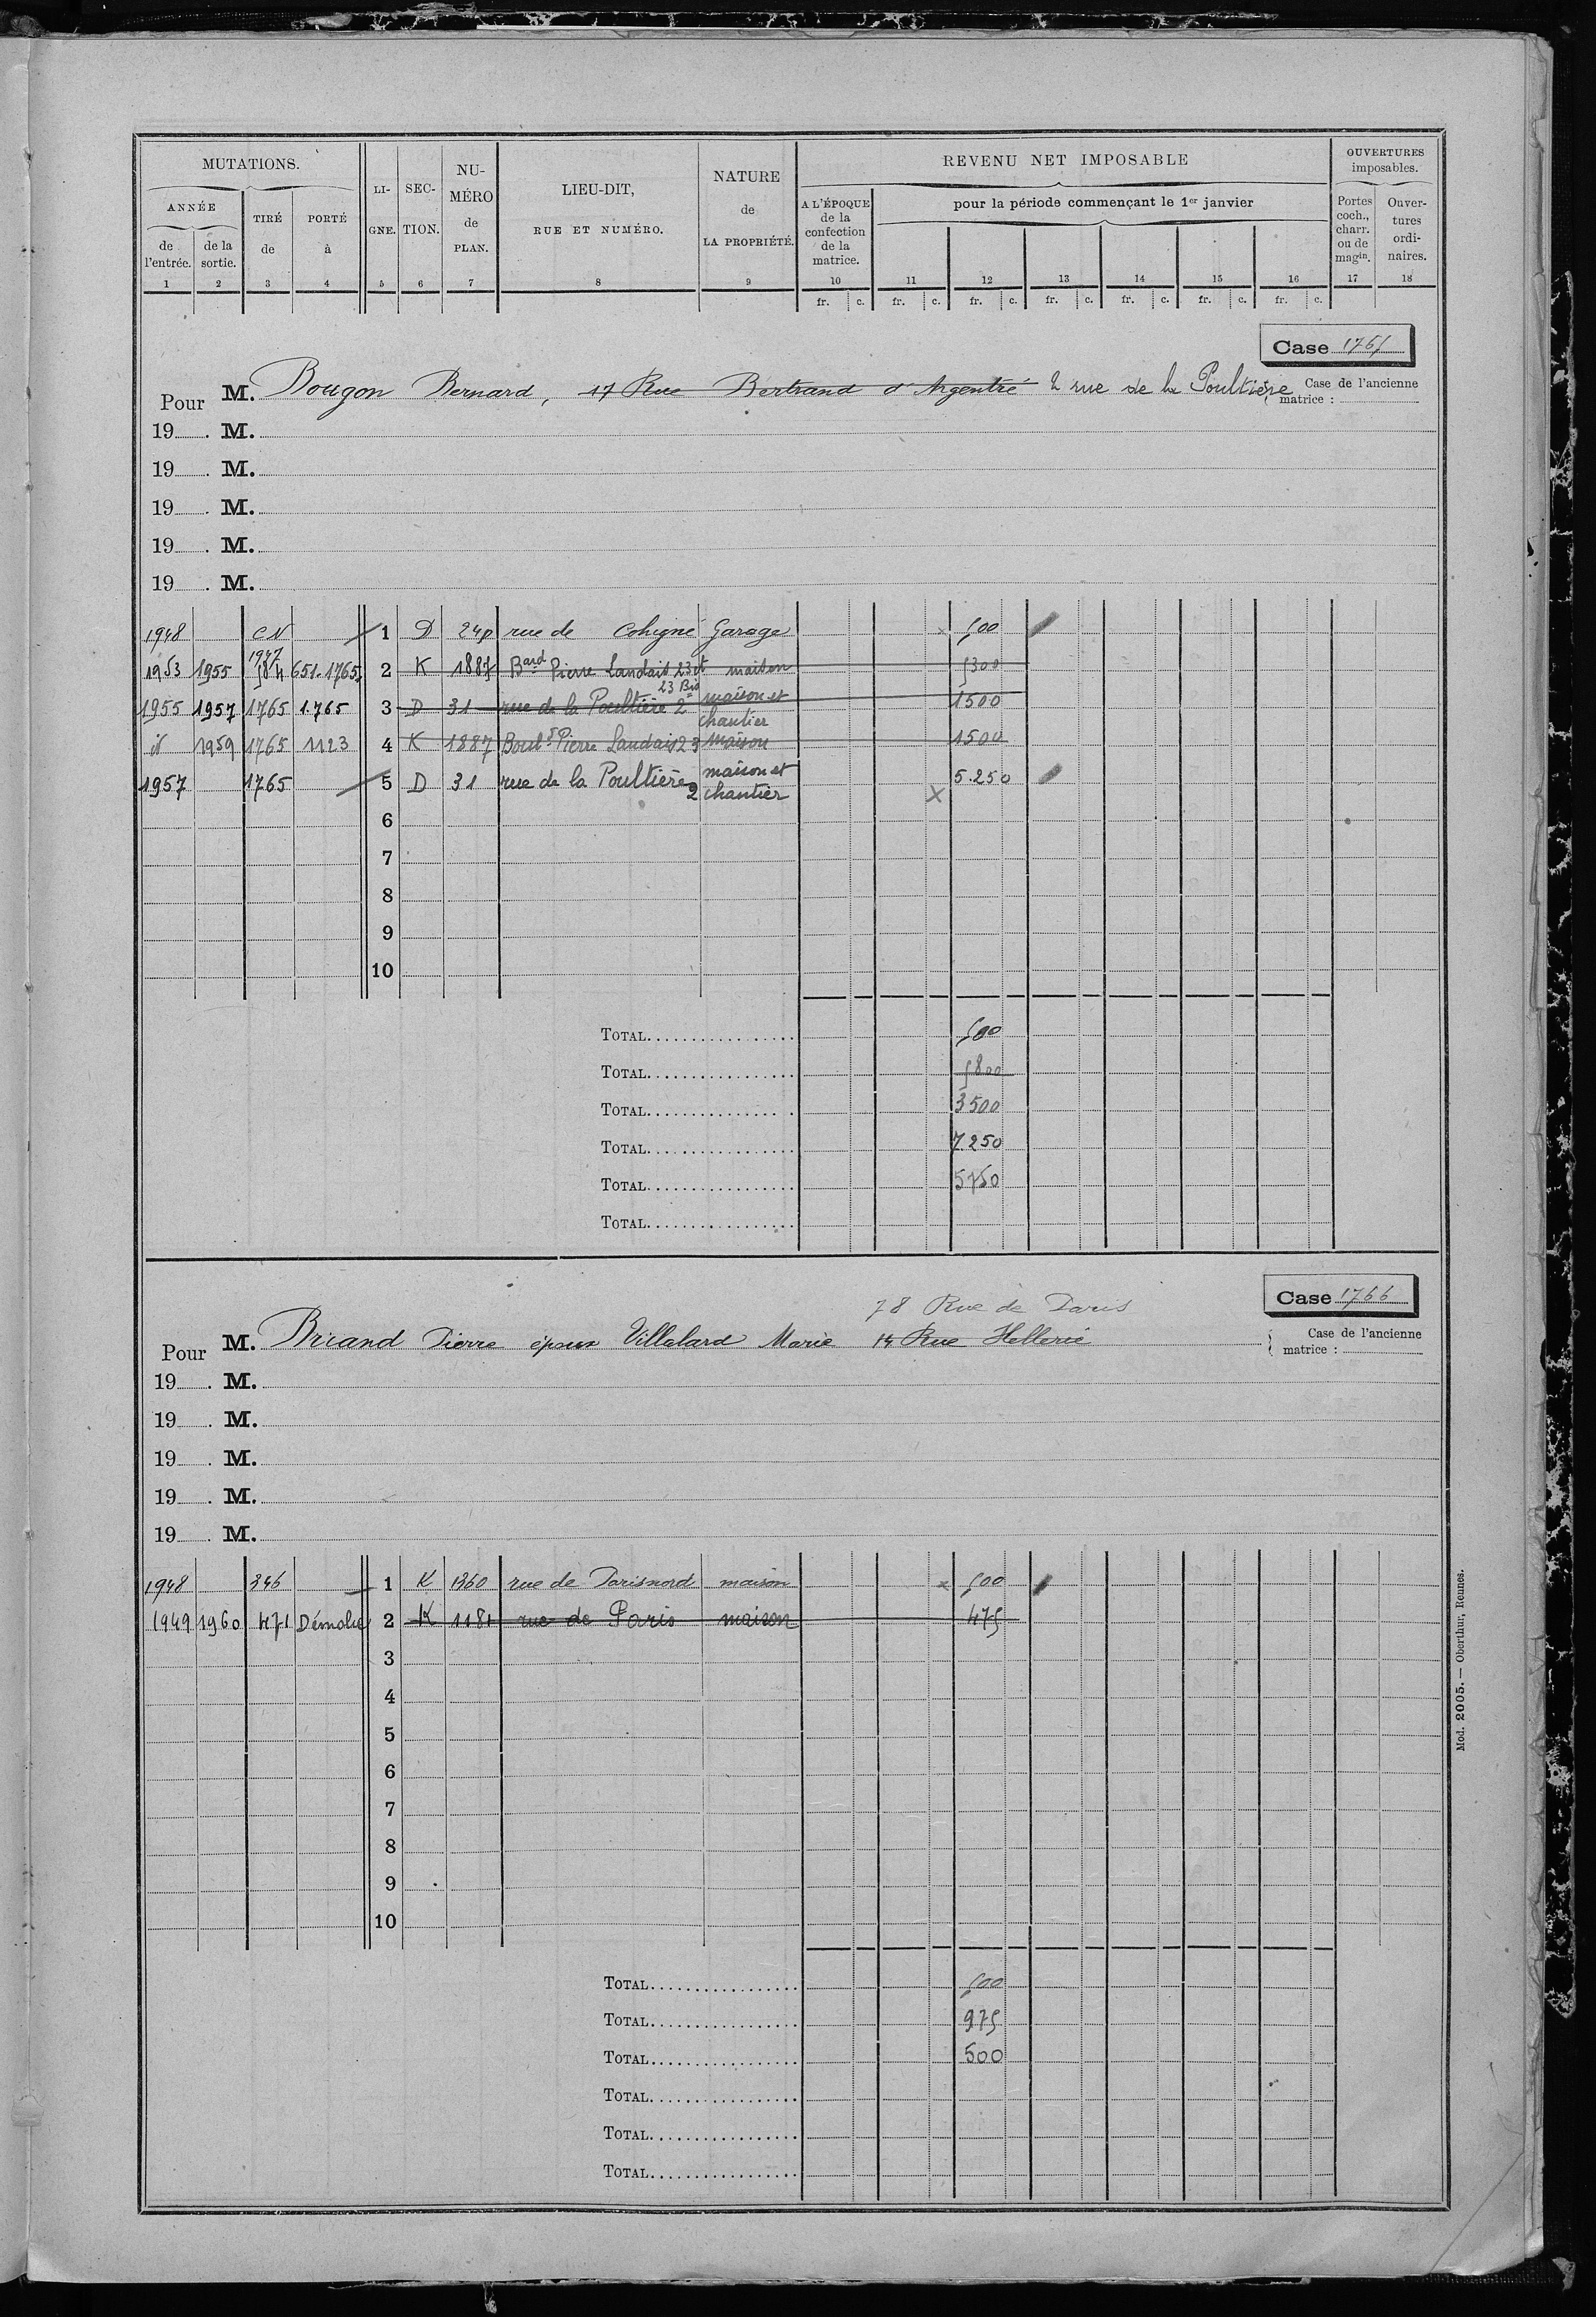 MUTATIONS.
ANNÉE
de l'entrée. de la sortie. TIRÉ de PORTÉ à LI-GNE. SEC-TION. NU-MÉRO de PLAN. LIEU-DIT, RUE ET NUMÉRO. NATURE de LA PROPRIÉTÉ.
REVENU NET IMPOSABLE
A L'ÉPOQUE de la confection de la matrice. pour la période commençant le 1er janvier
OUVERTURES imposables.
Portes coch., charr. ou de magin. Ouver-tures ordi-naires.
1 2 3 4 5 6 7 8 9 10 11 12 13 14 15 16 17 18
fr. c. fr. c. fr. c. fr. c. fr. c. fr. c. fr. c.
Case 1765
Pour M. Bougon Bernard, 17 Rue Bertrand d'Argentré 2 rue de la Poultière Case de l'ancienne matrice :
19 . M.
19 . M.
19 . M.
19 . M.
19 . M.
1948 CN 1 D 24p rue de Cohigné Garage 500
1953 1955 1947 584 651-1765 2 K 1887 Bard Pierre Landais 23 et 23 Bis maison 5300
1955 1957 1765 1765 3 D 31 rue de la Poultière 2 maison et chantier 1500
d° 1959 1765 1123 4 K 1887 Boul d Pierre Landais 23 maison 1500
1957 1765 5 D 31 rue de la Poultière 2 maison et chantier X 5.250
6
7
8
9
10
TOTAL 500
TOTAL 5800
TOTAL 3500
TOTAL 7.250
TOTAL 5750
TOTAL
Case 1766
78 Rue de Paris
Pour M. Briand Pierre époux Villalard Marie 14 Rue Hellerie Case de l'ancienne matrice :
19 . M.
19 . M.
19 . M.
19 . M.
19 . M.
1948 346 1 K 1360 rue de Paris nord maison x 500
1949 1960 471 Démolie 2 K 1181 rue de Paris maison 475
3
4
5
6
7
8
9
10
TOTAL 500
TOTAL 975
TOTAL 500
TOTAL
TOTAL
TOTAL
Mod. 2005. — Oberthur, Rennes.